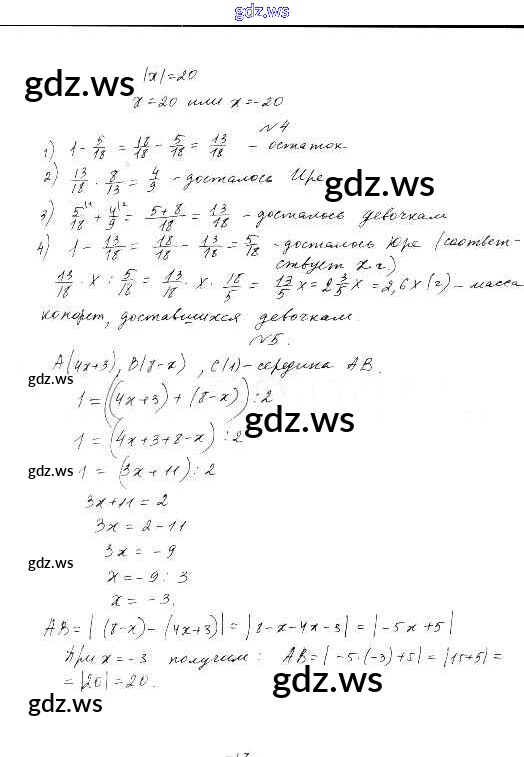 gdz.ws
|x|=20
gdz.ws
x=20 или x=-20
№4
1) 1 - 5/18 = 18/18 - 5/18 = 13/18 - остаток
2) 13/18 · 8/13 = 4/9 - досталось Ире
gdz.ws
3) 5/18 + 4/9 = (5+8)/18 = 13/18 - досталось девочкам
4) 1 - 13/18 = 18/18 - 13/18 = 5/18 - досталось Юре (соответ-
ствует x г.)
13/18 · x : 5/18 = 13/18 · x · 18/5 = 13/5 x = 2 3/5 x = 2,6x (г) - масса
конфет, доставшихся девочкам.
№5.
A(4x+3), B(8-x), C(1) - середина AB.
gdz.ws
1 = ((4x+3) + (8-x)) : 2
gdz.ws
1 = (4x+3+8-x) : 2
gdz.ws
1 = (3x+11) : 2
3x+11 = 2
3x = 2-11
3x = -9
gdz.ws
x = -9 : 3
x = -3.
AB = |(8-x) - (4x+3)| = |8-x-4x-3| = |-5x+5|
При x = -3 получим: AB = |-5·(-3)+5| = |15+5| =
= |20| = 20.
gdz.ws
gdz.ws